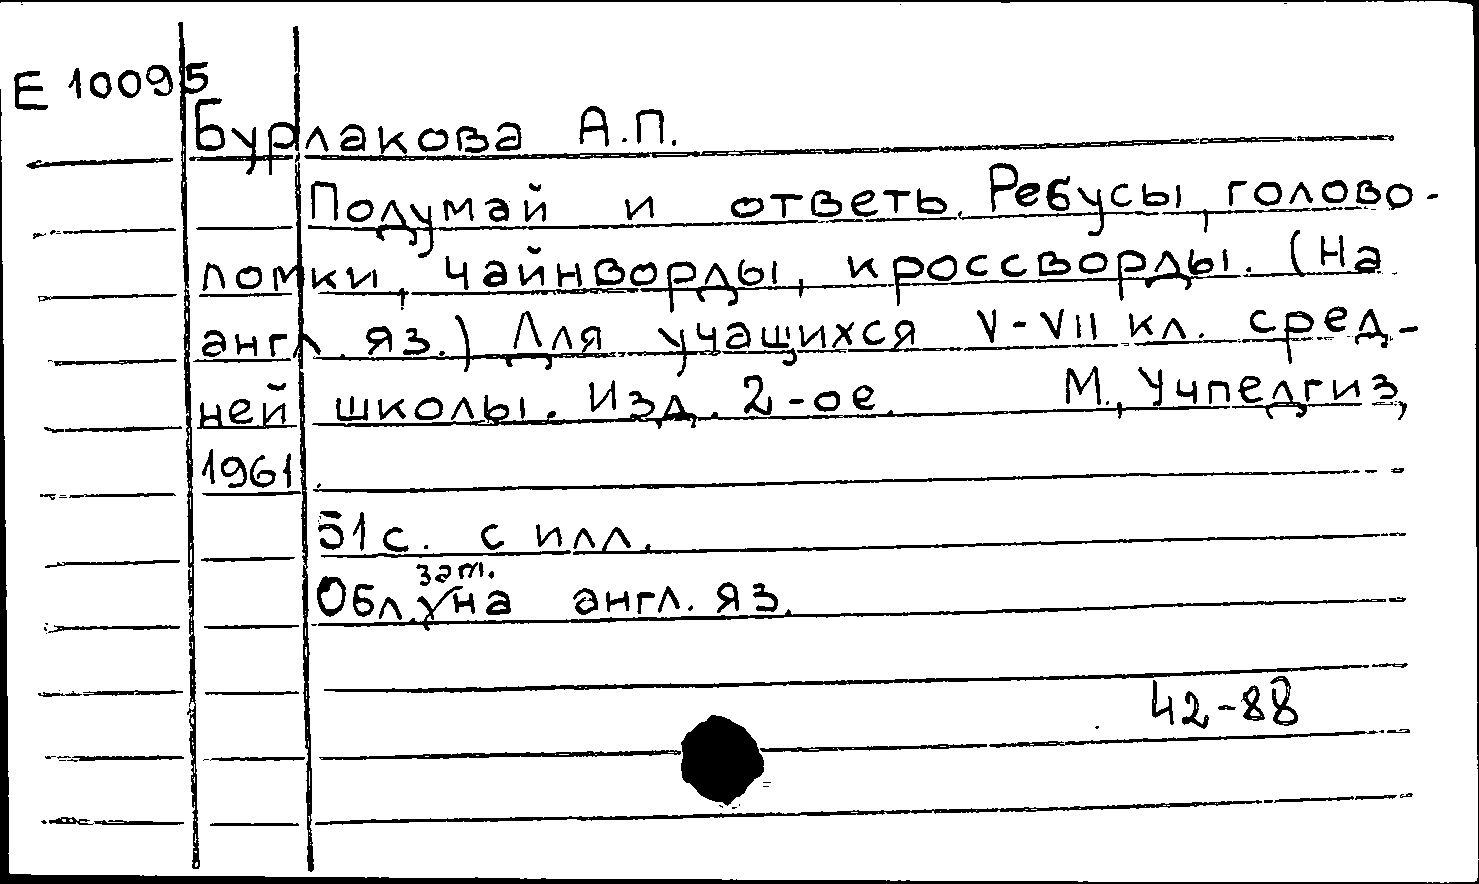 Е 10095
Бурлакова А.П.
Подумай и ответь. Ребусы, голово-
ломки, чайнворды, кроссворды. (На
англ. яз.) Для учащихся V-VII кл. сред-
ней школы. Изд. 2-ое. М., Учпедгиз,
1961.
51 с. с илл.
зат.
Обл. у на англ. яз.
42-88